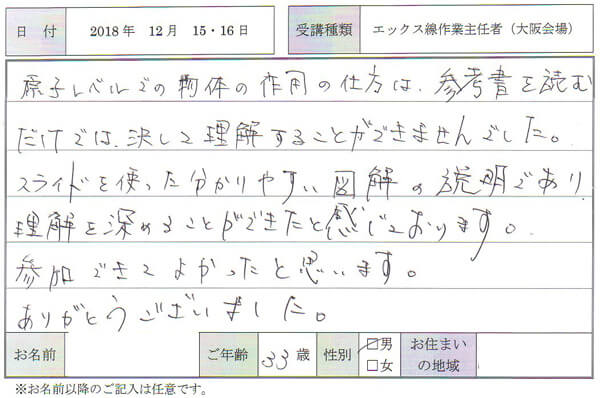 日付 2018年 12月 15・16日 受講種類 エックス線作業主任者（大阪会場）
原子レベルでの物体の作用の仕方は、参考書を読む
だけでは、決して理解することができませんでした。
スライドを使った分かりやすい図解の説明であり、
理解を深めることができたと感じております。
参加できてよかったと思います。
ありがとうございました。
お名前 ご年齢 33歳 性別 □男 □女 お住まいの地域
※お名前以降のご記入は任意です。